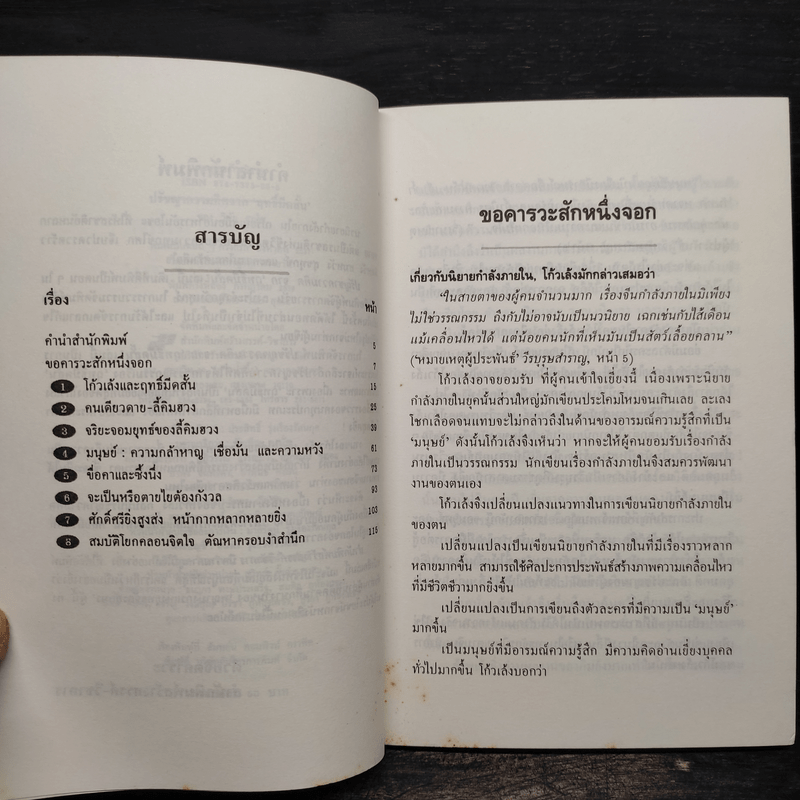 สารบัญ
เรื่อง หน้า
คำนำสำนักพิมพ์ 5
ขอคารวะสักหนึ่งจอก 7
1 โก้วเล้งและฤทธิ์มีดสั้น 15
2 คนเดียวดาย-ลี้คิมฮวง 25
3 จริยะจอมยุทธ์ของลี้คิมฮวง 39
4 มนุษย์ : ความกล้าหาญ เชื่อมั่น และความหวัง 61
5 ขื่อคาและซึ้งนึ่ง 73
6 จะเป็นหรือตายไยต้องกังวล 93
7 ศักดิ์ศรียิ่งสูงส่ง หน้ากากหลากหลายยิ่ง 103
8 สมบัติโยกคลอนจิตใจ ตัณหาครอบงำสำนึก 115
ขอคารวะสักหนึ่งจอก
เกี่ยวกับนิยายกำลังภายใน, โก้วเล้งมักกล่าวเสมอว่า
"ในสายตาของผู้คนจำนวนมาก เรื่องจีนกำลังภายในมิเพียง
ไม่ใช่วรรณกรรม ถึงกับไม่อาจนับเป็นนวนิยาย เฉกเช่นกับไส้เดือน
แม้เคลื่อนไหวได้ แต่น้อยคนนักที่เห็นมันเป็นสัตว์เลื้อยคลาน"
('หมายเหตุผู้ประพันธ์' วีรบุรุษสำราญ, หน้า 5)
โก้วเล้งอาจยอมรับ ที่ผู้คนเข้าใจเยี่ยงนี้ เนื่องเพราะนิยาย
กำลังภายในยุคนั้นส่วนใหญ่มักเขียนประโคมโหมจนเกินเลย ละเลง
โชกเลือดจนแทบจะไม่กล่าวถึงในด้านของอารมณ์ความรู้สึกที่เป็น
'มนุษย์' ดังนั้นโก้วเล้งจึงเห็นว่า หากจะให้ผู้คนยอมรับเรื่องกำลัง
ภายในเป็นวรรณกรรม นักเขียนเรื่องกำลังภายในจึงสมควรพัฒนา
งานของตนเอง
โก้วเล้งจึงเปลี่ยนแปลงแนวทางในการเขียนนิยายกำลังภายใน
ของตน
เปลี่ยนแปลงเป็นเขียนนิยายกำลังภายในที่มีเรื่องราวหลาก
หลายมากขึ้น สามารถใช้ศิลปะการประพันธ์สร้างภาพความเคลื่อนไหว
ที่มีชีวิตชีวามากยิ่งขึ้น
เปลี่ยนแปลงเป็นการเขียนถึงตัวละครที่มีความเป็น 'มนุษย์'
มากขึ้น
เป็นมนุษย์ที่มีอารมณ์ความรู้สึก มีความคิดอ่านเยี่ยงบุคคล
ทั่วไปมากขึ้น โก้วเล้งบอกว่า